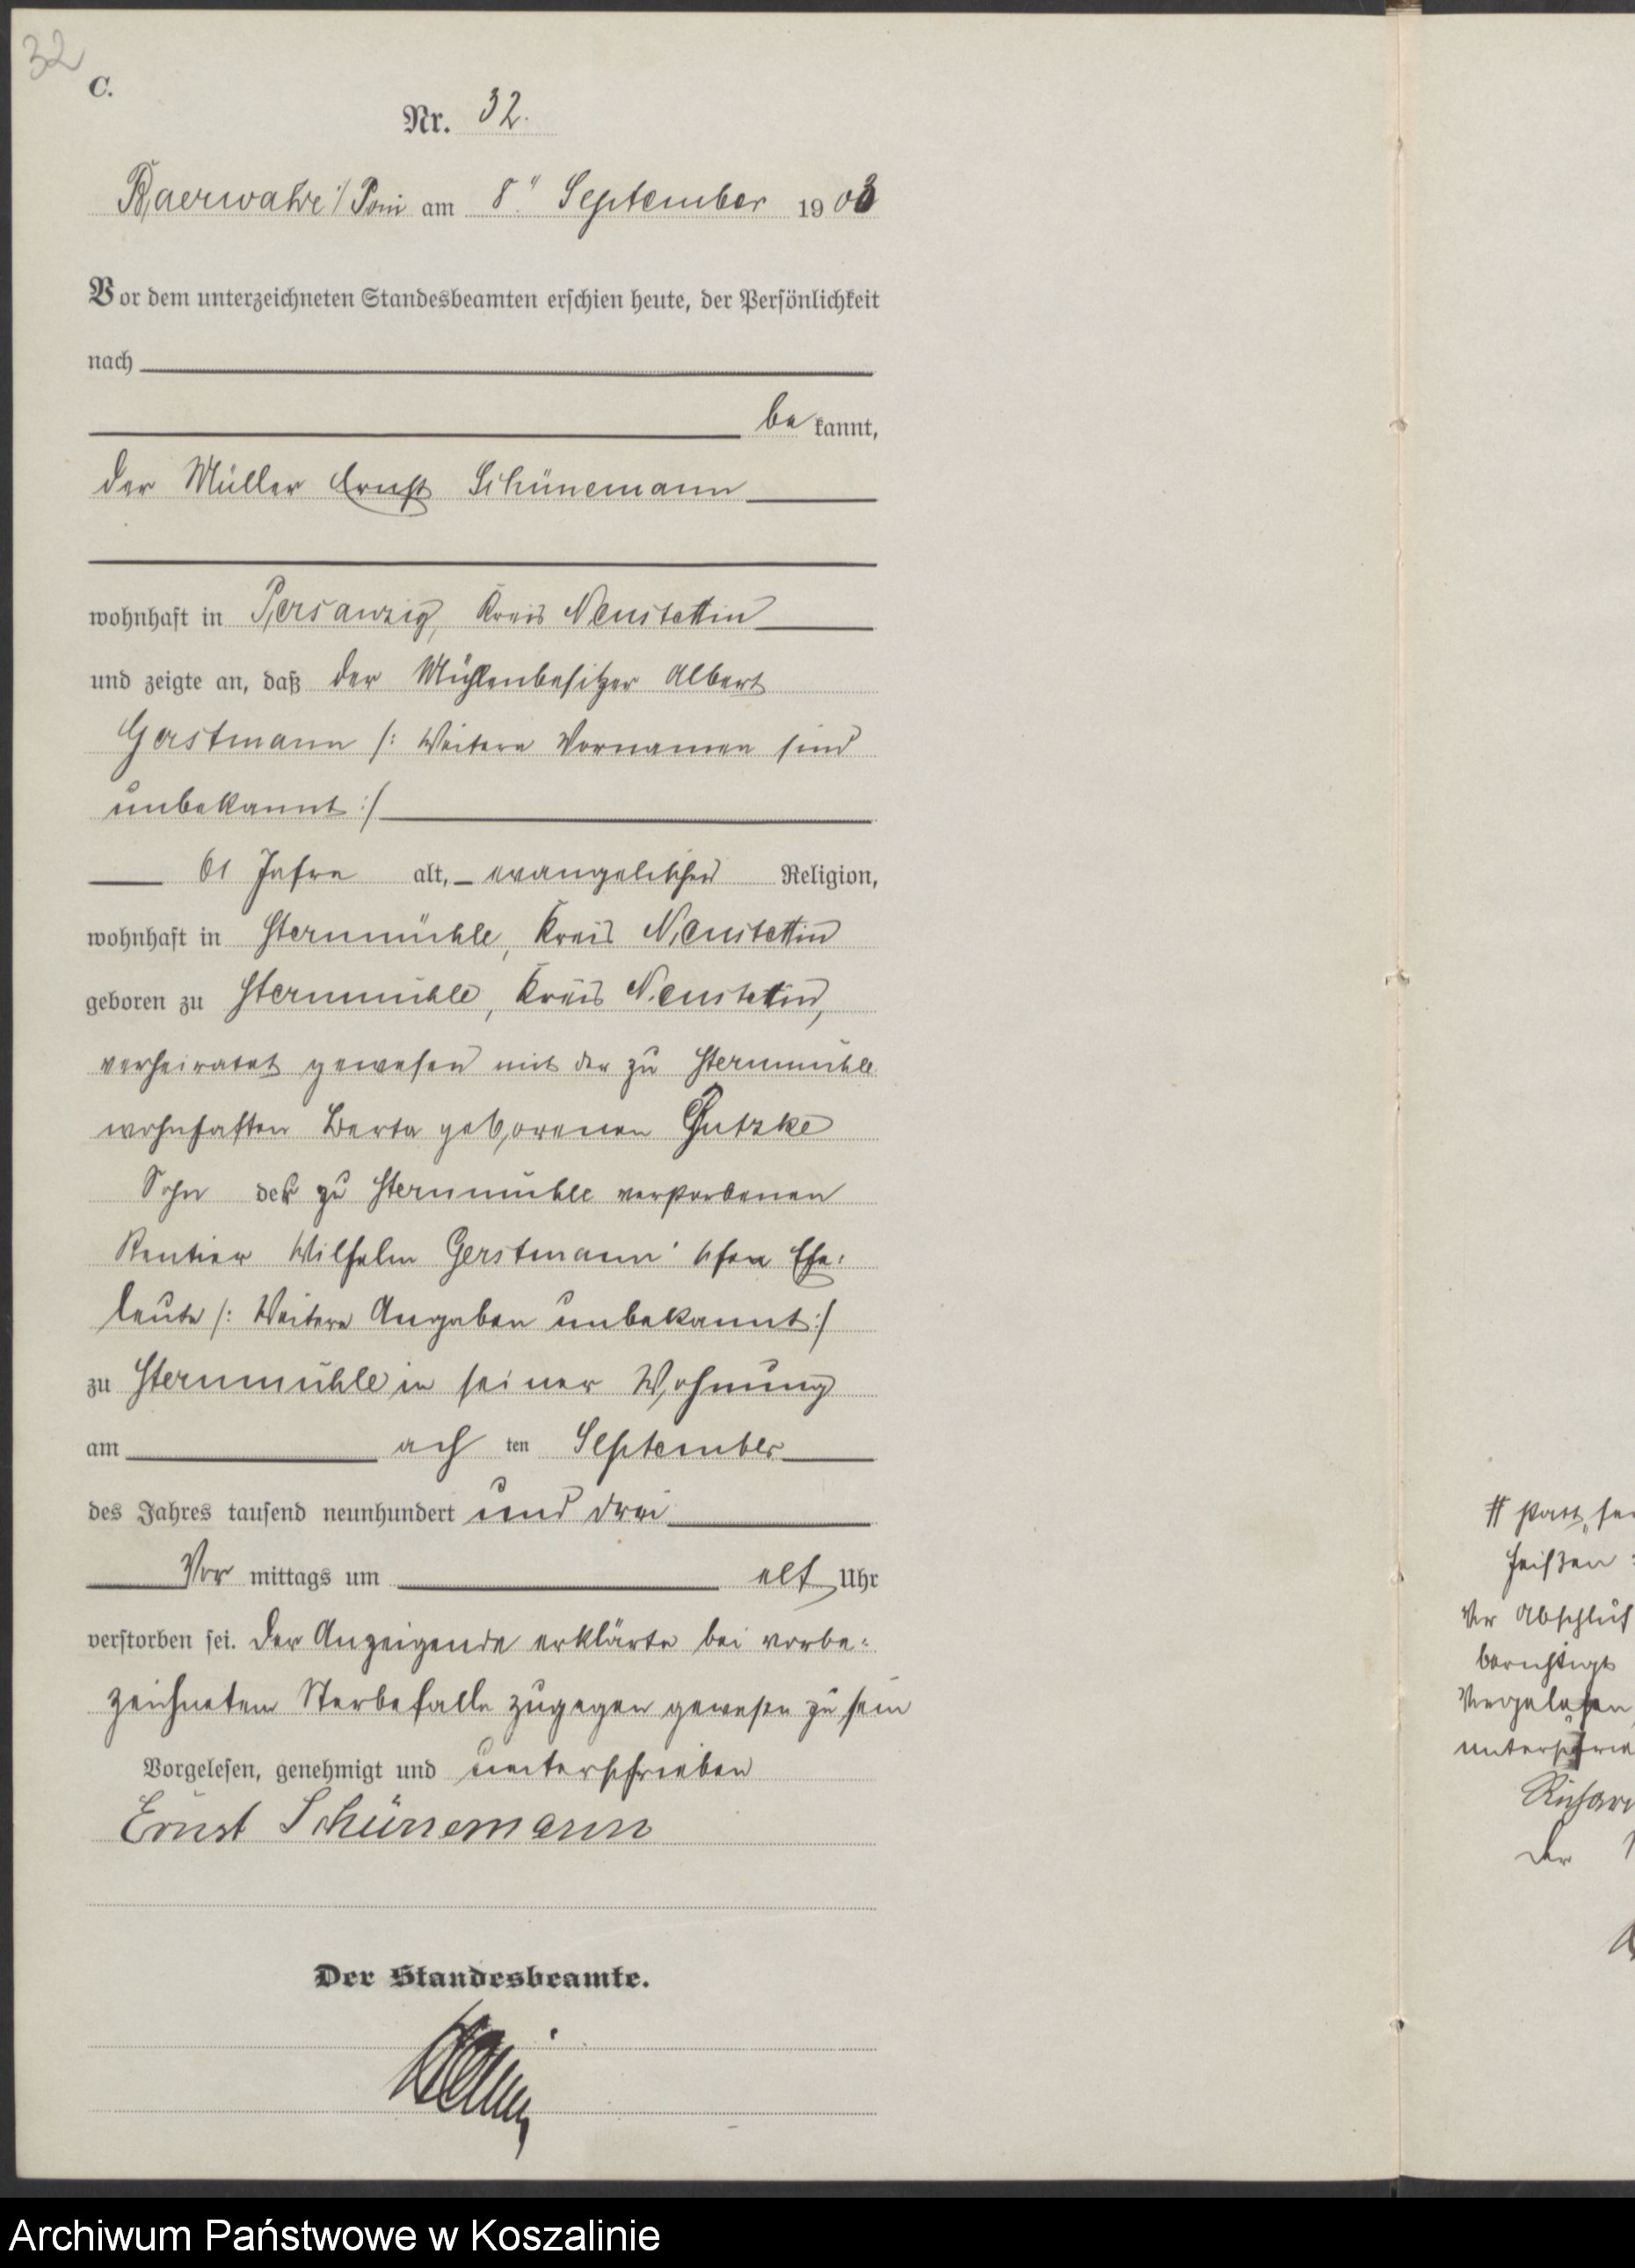 32
C.
Nr. 32.
Baerwalde i/Pom am 8ten September 1903
Vor dem unterzeichneten Standesbeamten erschien heute, der Persönlichkeit
nach
bekannt,
der Müller Ernst Schünemann
wohnhaft in Persanzig, Kreis Neustettin
und zeigte an, daß der Mühlenbesitzer Albert
Gerstmann /: Weitere Vornamen sind
unbekannt :/
61 Jahre alt, evangelischer Religion,
wohnhaft in Sternmühle, Kreis Neustettin
geboren zu Sternmühle, Kreis Neustettin,
verheiratet gewesen mit der zu Sternmühle
wohnhaften Berta geborenen Gutzke
Sohn der zu Sternmühle verstorbenen
Rentier Wilhelm Gerstmann'schen Ehe:
leute /: Weitere Angaben unbekannt :/
zu Sternmühle in seiner Wohnung
am achten September
des Jahres tausend neunhundert und drei
Vor mittags um elf Uhr
verstorben sei. Der Anzeigende erklärte bei vorbe:
zeichnetem Sterbefalle zugegen gewesen zu sein
Vorgelesen, genehmigt und unterschrieben
Ernst Schünemann
Der Standesbeamte.
# statt
heißen
Vor Abschluß
berichtigt
Vorgelesen
Der
Archiwum Państwowe w Koszalinie